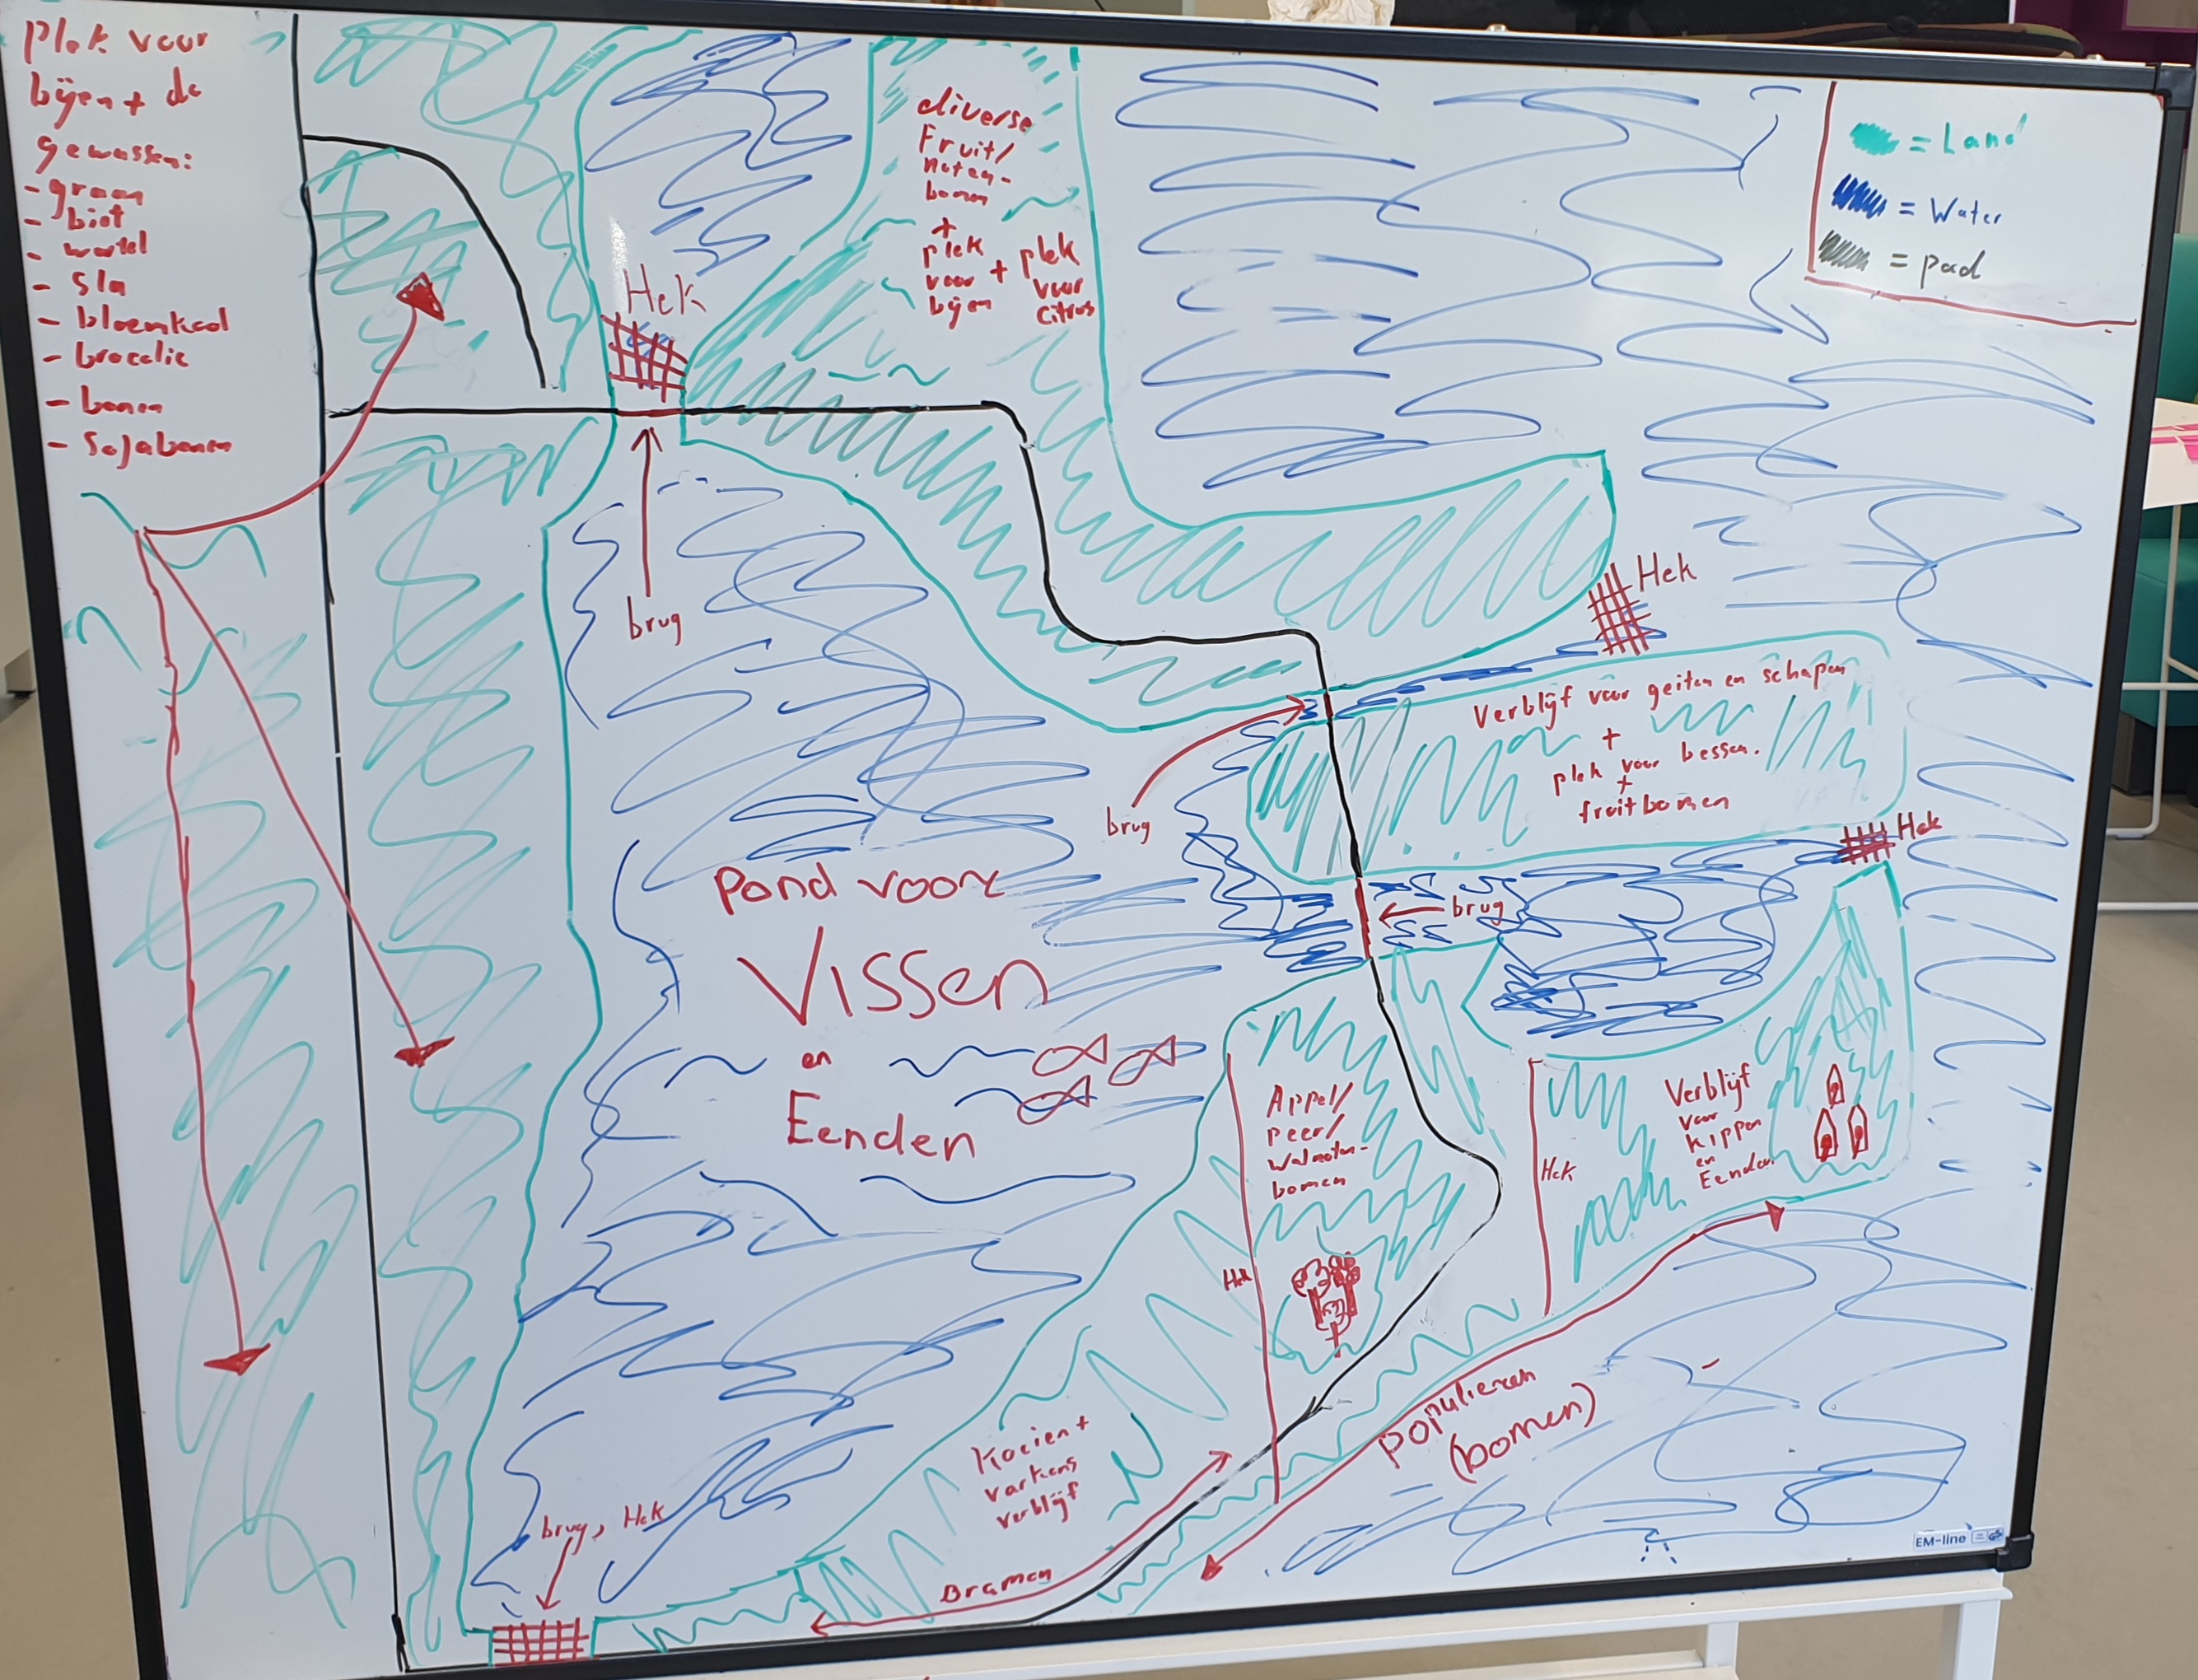 plek voor
bijen + de
gewassen:
- graan
- biet
- wortel
- Sla
- bloemkool
- brocolie
- bonen
- Sojabonen
diverse
Fruit/
noten-
bomen
+
plek
voor
bijen
+ plek
voor
citrus
= Land
= Water
= pad
Hek
brug
Hek
Verblijf voor geiten en schapen
+
plek voor bessen.
+
fruitbomen
brug
Hek
brug
Pond voor
Vissen
en
Eenden
Appel/
peer/
Walnoten-
bomen
Hek
Hek
Verblijf
voor
kippen
en
Eenden
populieren
(bomen)
Koeien +
varkens
verblijf
Bramen
brug, Hek
EM-line GS